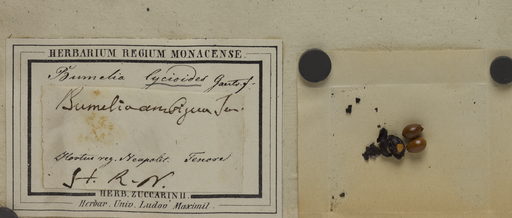 HERBARIUM REGIUM MONACENSE.
Bumelia lycioides Gaertn f.
Bumelia ambigua Ten.
Hortus reg. Neapolit. Tenore
H. R. N.
HERB. ZUCCARINII.
Herbar. Univ. Ludov Maximil.